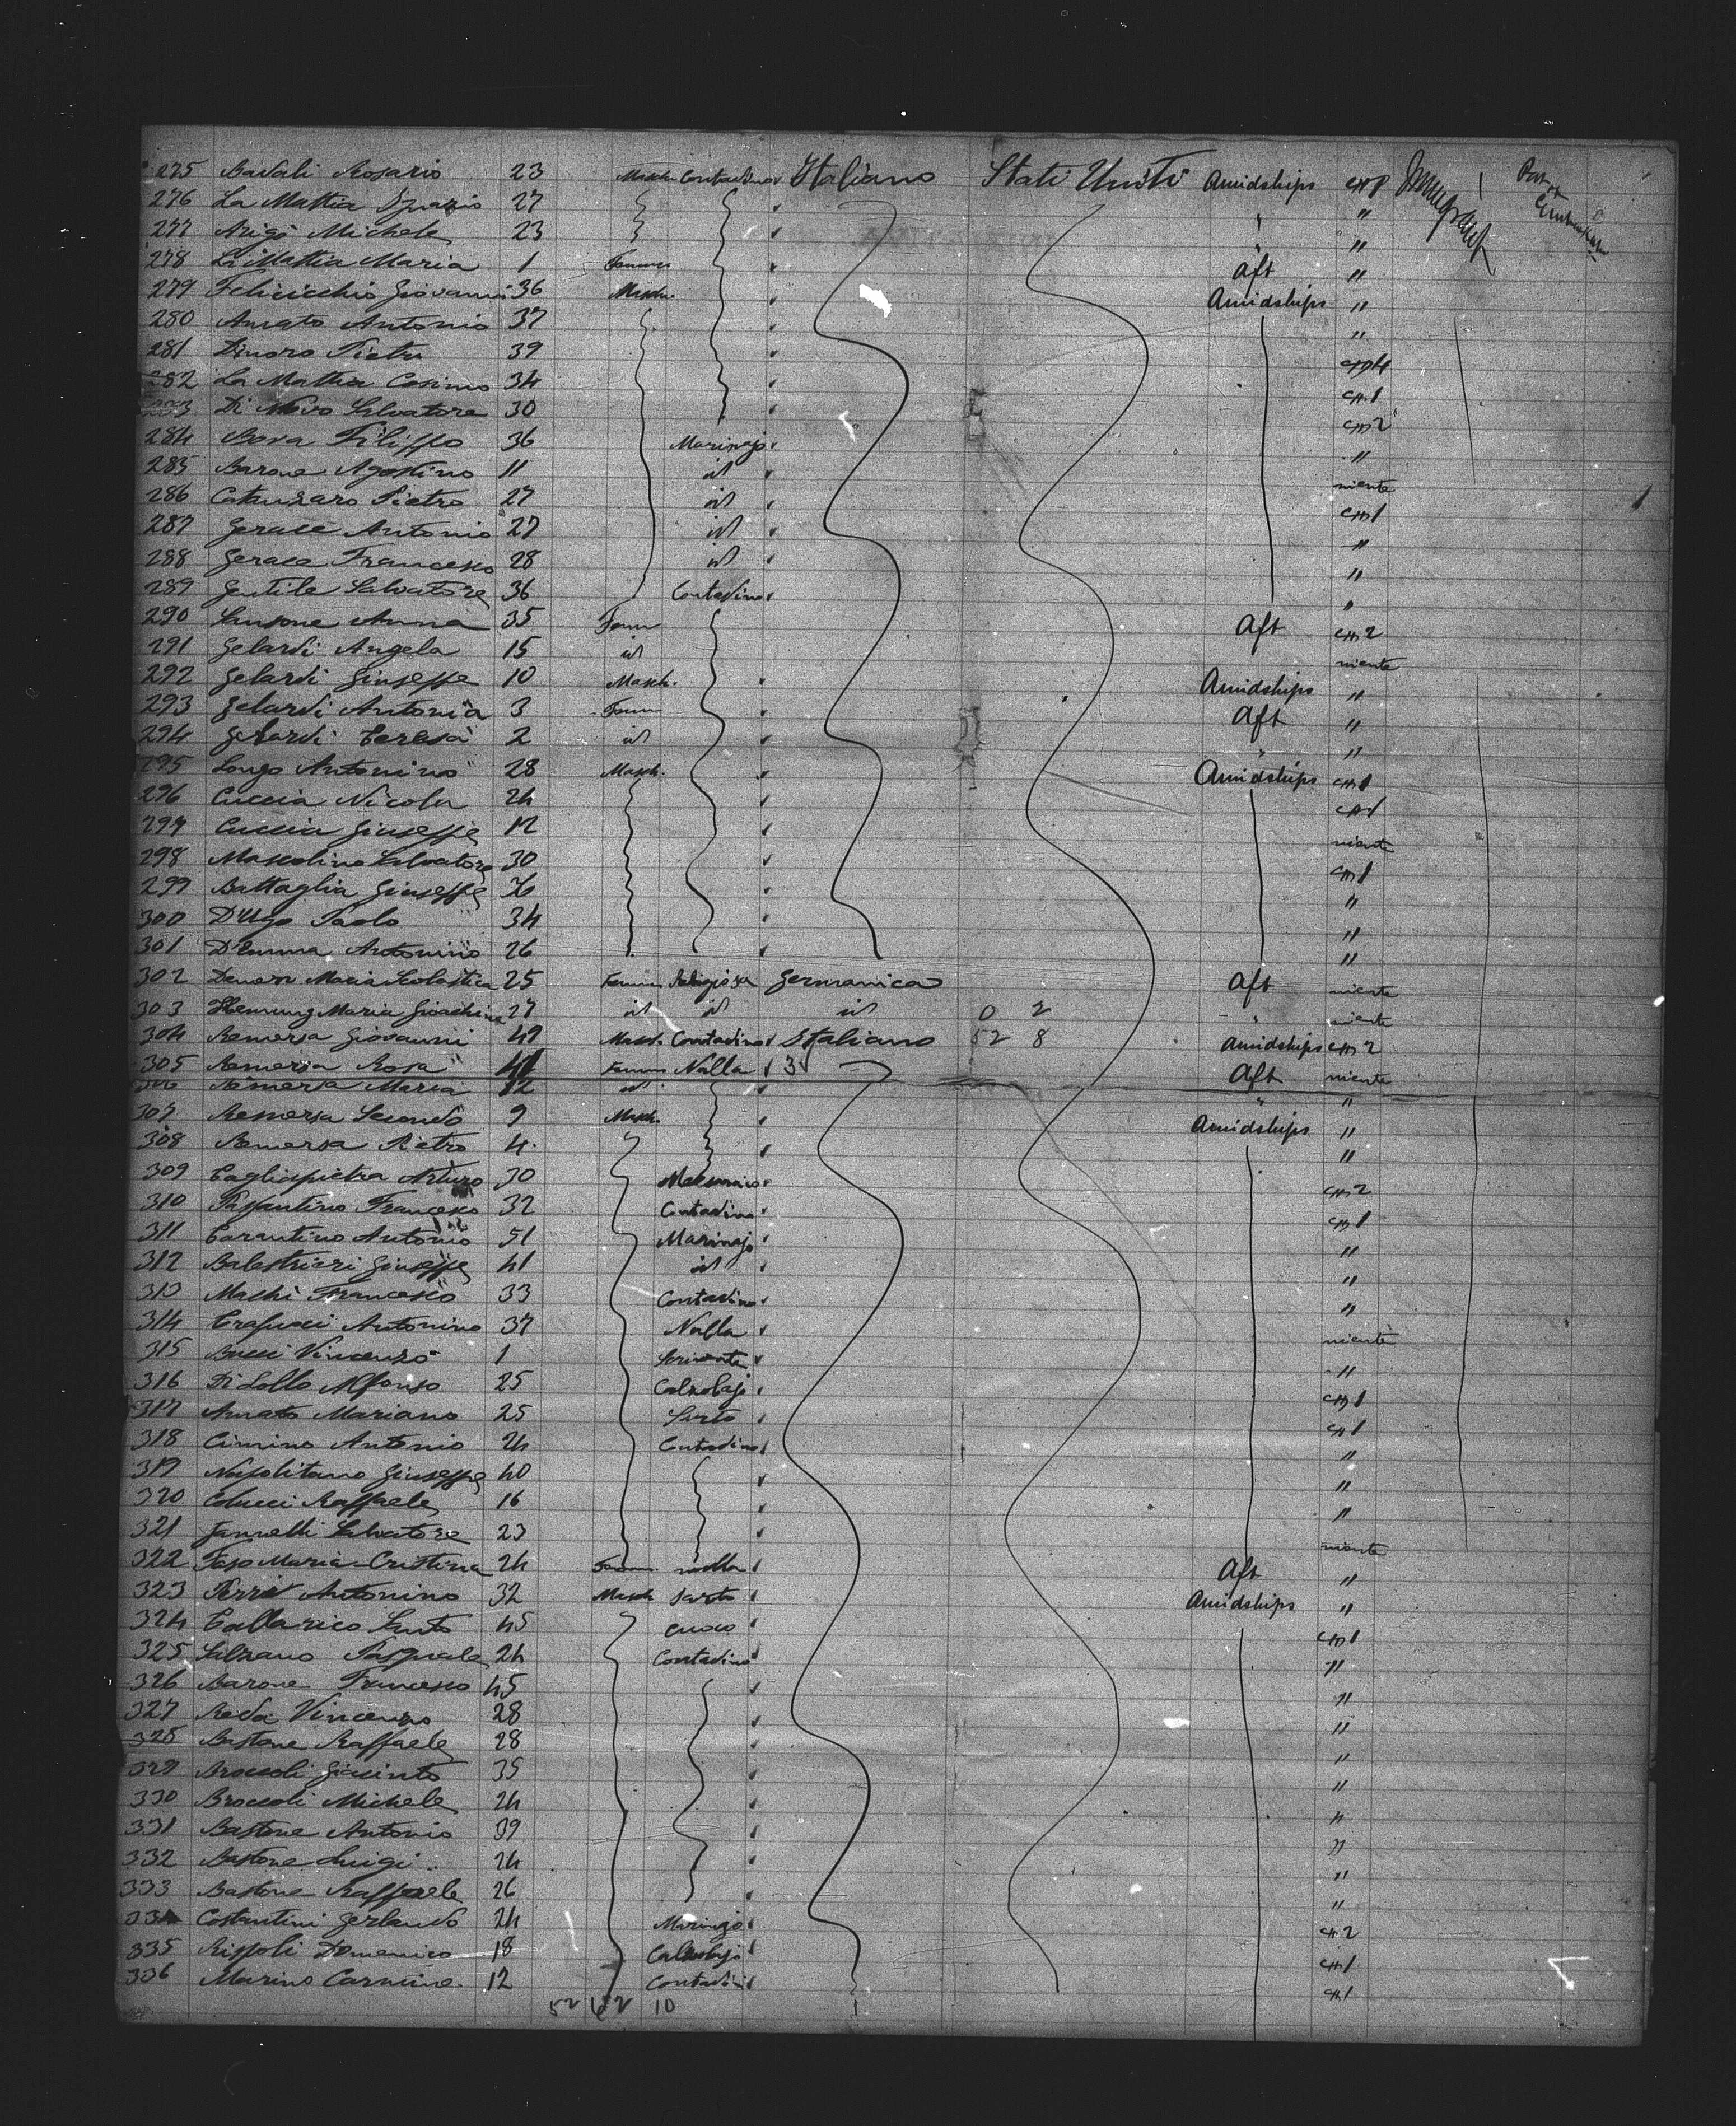 275 Badali Rosario 23 Masch. Contadino Italiano Stati Uniti Amidships cm 1 Immigrant Port of
276 La Mattia 27 " "
277 Arigò Michele 23 " "
278 La Mattia Maria 1 Femm. aft "
279 Felicicchio Giovanni 36 Masch. Amidships "
280 Amato Antonio 37 "
281 Dinoro Pietro 39 cm 4
282 La Mattia Cosimo 34 cm 1
283 Di Novo Salvatore 30 cm 2
284 Bova Filippo 36 Marinajo "
285 Barone Agostino 11 id niente
286 Catanzaro Pietro 27 id cm 1
287 Gerace Antonio 27 id "
288 Gerace Francesco 28 id "
289 Gentile Salvatore 36 Contadino "
290 Sansone Anna 35 Femm Aft cm 2
291 Gelardi Angela 15 id niente
292 Gelardi Giuseppe 10 Masch. Amidships "
293 Gelardi Antonia 3 Femm Aft "
294 Gelardi Teresa 2 id " "
295 Longo Antonino 28 Masch. Amidships cm 1
296 Cuccia Nicola 24 cm 1
297 Cuccia Giuseppe 12 niente
298 Mascolino Salvatore 30 cm 1
299 Battaglia Giuseppe "
300 D'Ugo Paolo 34 "
301 D'Emma Antonino 26 "
302 Maria Scolastica 25 Femm Religiosa Germanica Aft niente
303 Maria Gioachina 27 id id id 0 2 " niente
304 Remersa Giovanni 47 Masch. Contadino Italiano 52 8 Amidships cm 2
305 Remersa Rosa 41 Femm Nulla 3 Aft niente
306 Remersa Maria 12 id " "
307 Remersa Secondo 9 Masch. Amidships "
308 Remersa Pietro 4 "
309 Tagliapietra Arturo 30 cm 2
310 Passantino Francesco 32 Contadino cm 1
311 Tarantino Antonio 51 Marinajo "
312 Balestrieri Giuseppe 41 id "
313 Mashi Francesco 33 Contadino "
314 Trapucci Antonino 37 Nulla niente
315 Bucci Vincenzo 1 "
316 Di Lollo Alfonso 25 Calzolajo cm 1
317 Amato Mariano 25 Sarto cm 1
318 Cimino Antonio 24 Contadino "
319 Napolitano Giuseppe 40 "
320 Colucci Raffaele 16 "
321 Jannelli Salvatore 23 niente
322 Faso Maria Cristina 24 Femm. nulla Aft "
323 Ferri Antonino 32 Masch Sarto Amidships "
324 Tallarico Santo 45 cuoco cm 1
325 Salzano Pasquale 24 Contadino "
326 Barone Francesco 45 "
327 Reda Vincenzo 28 "
328 Bastone Raffaele 28 "
329 Broccoli Giacinto 35 "
330 Broccoli Michele 24 "
331 Bastone Antonio 39 "
332 Bastone Luigi 24 "
333 Bastone Raffaele 26 "
334 Costantini Gerlando 24 Marinajo cm 2
335 Rispoli Domenico 18 Calzolajo cm 1
336 Marino Carmine 12 Contadino cm 1
52 62 10